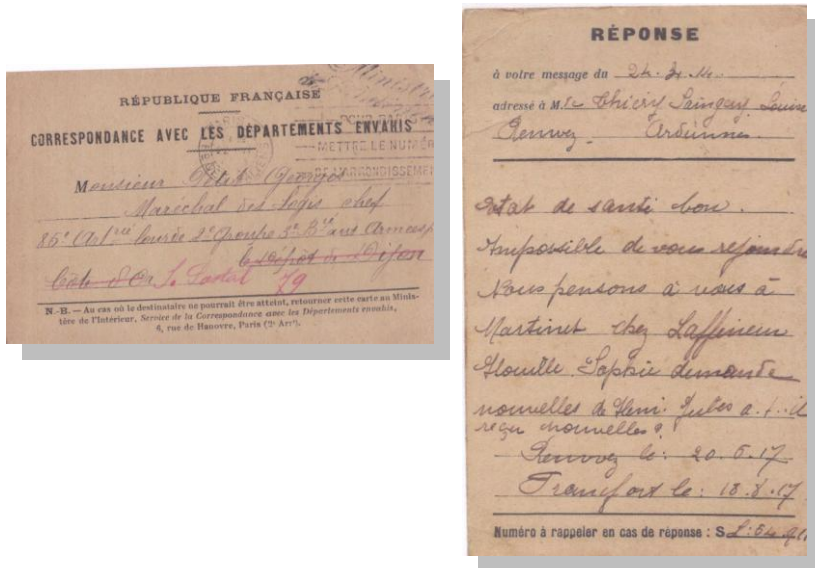 RÉPUBLIQUE FRANÇAISE
CORRESPONDANCE AVEC LES DÉPARTEMENTS ENVAHIS
METTRE LE NUMÉR
Monsieur Petit Georges
Maréchal des logis chef
85e Artrie lourde 2e Groupe 3e Bie aux Armées
Dépôt de Dijon
Côte d'Or S. Postal 79
N.-B. — Au cas où le destinataire ne pourrait être atteint, retourner cette carte au Minis-
tère de l'Intérieur, Service de la Correspondance avec les Départements envahis,
4, rue de Hanovre, Paris (2e Arrt).
RÉPONSE
à votre message du
adressé à M. Thiéry Saingery Louise
Renwez Ardennes
Etat de santé bon.
Impossible de vous rejoindre
Nous pensons à vous à
Martinet chez Laffineur
Sophie demande
nouvelles de Henri. Jules a-t-il
reçu nouvelles?
Renwez le: 20.6.17
Francfort le: 18.8.17
Numéro à rappeler en cas de réponse : S